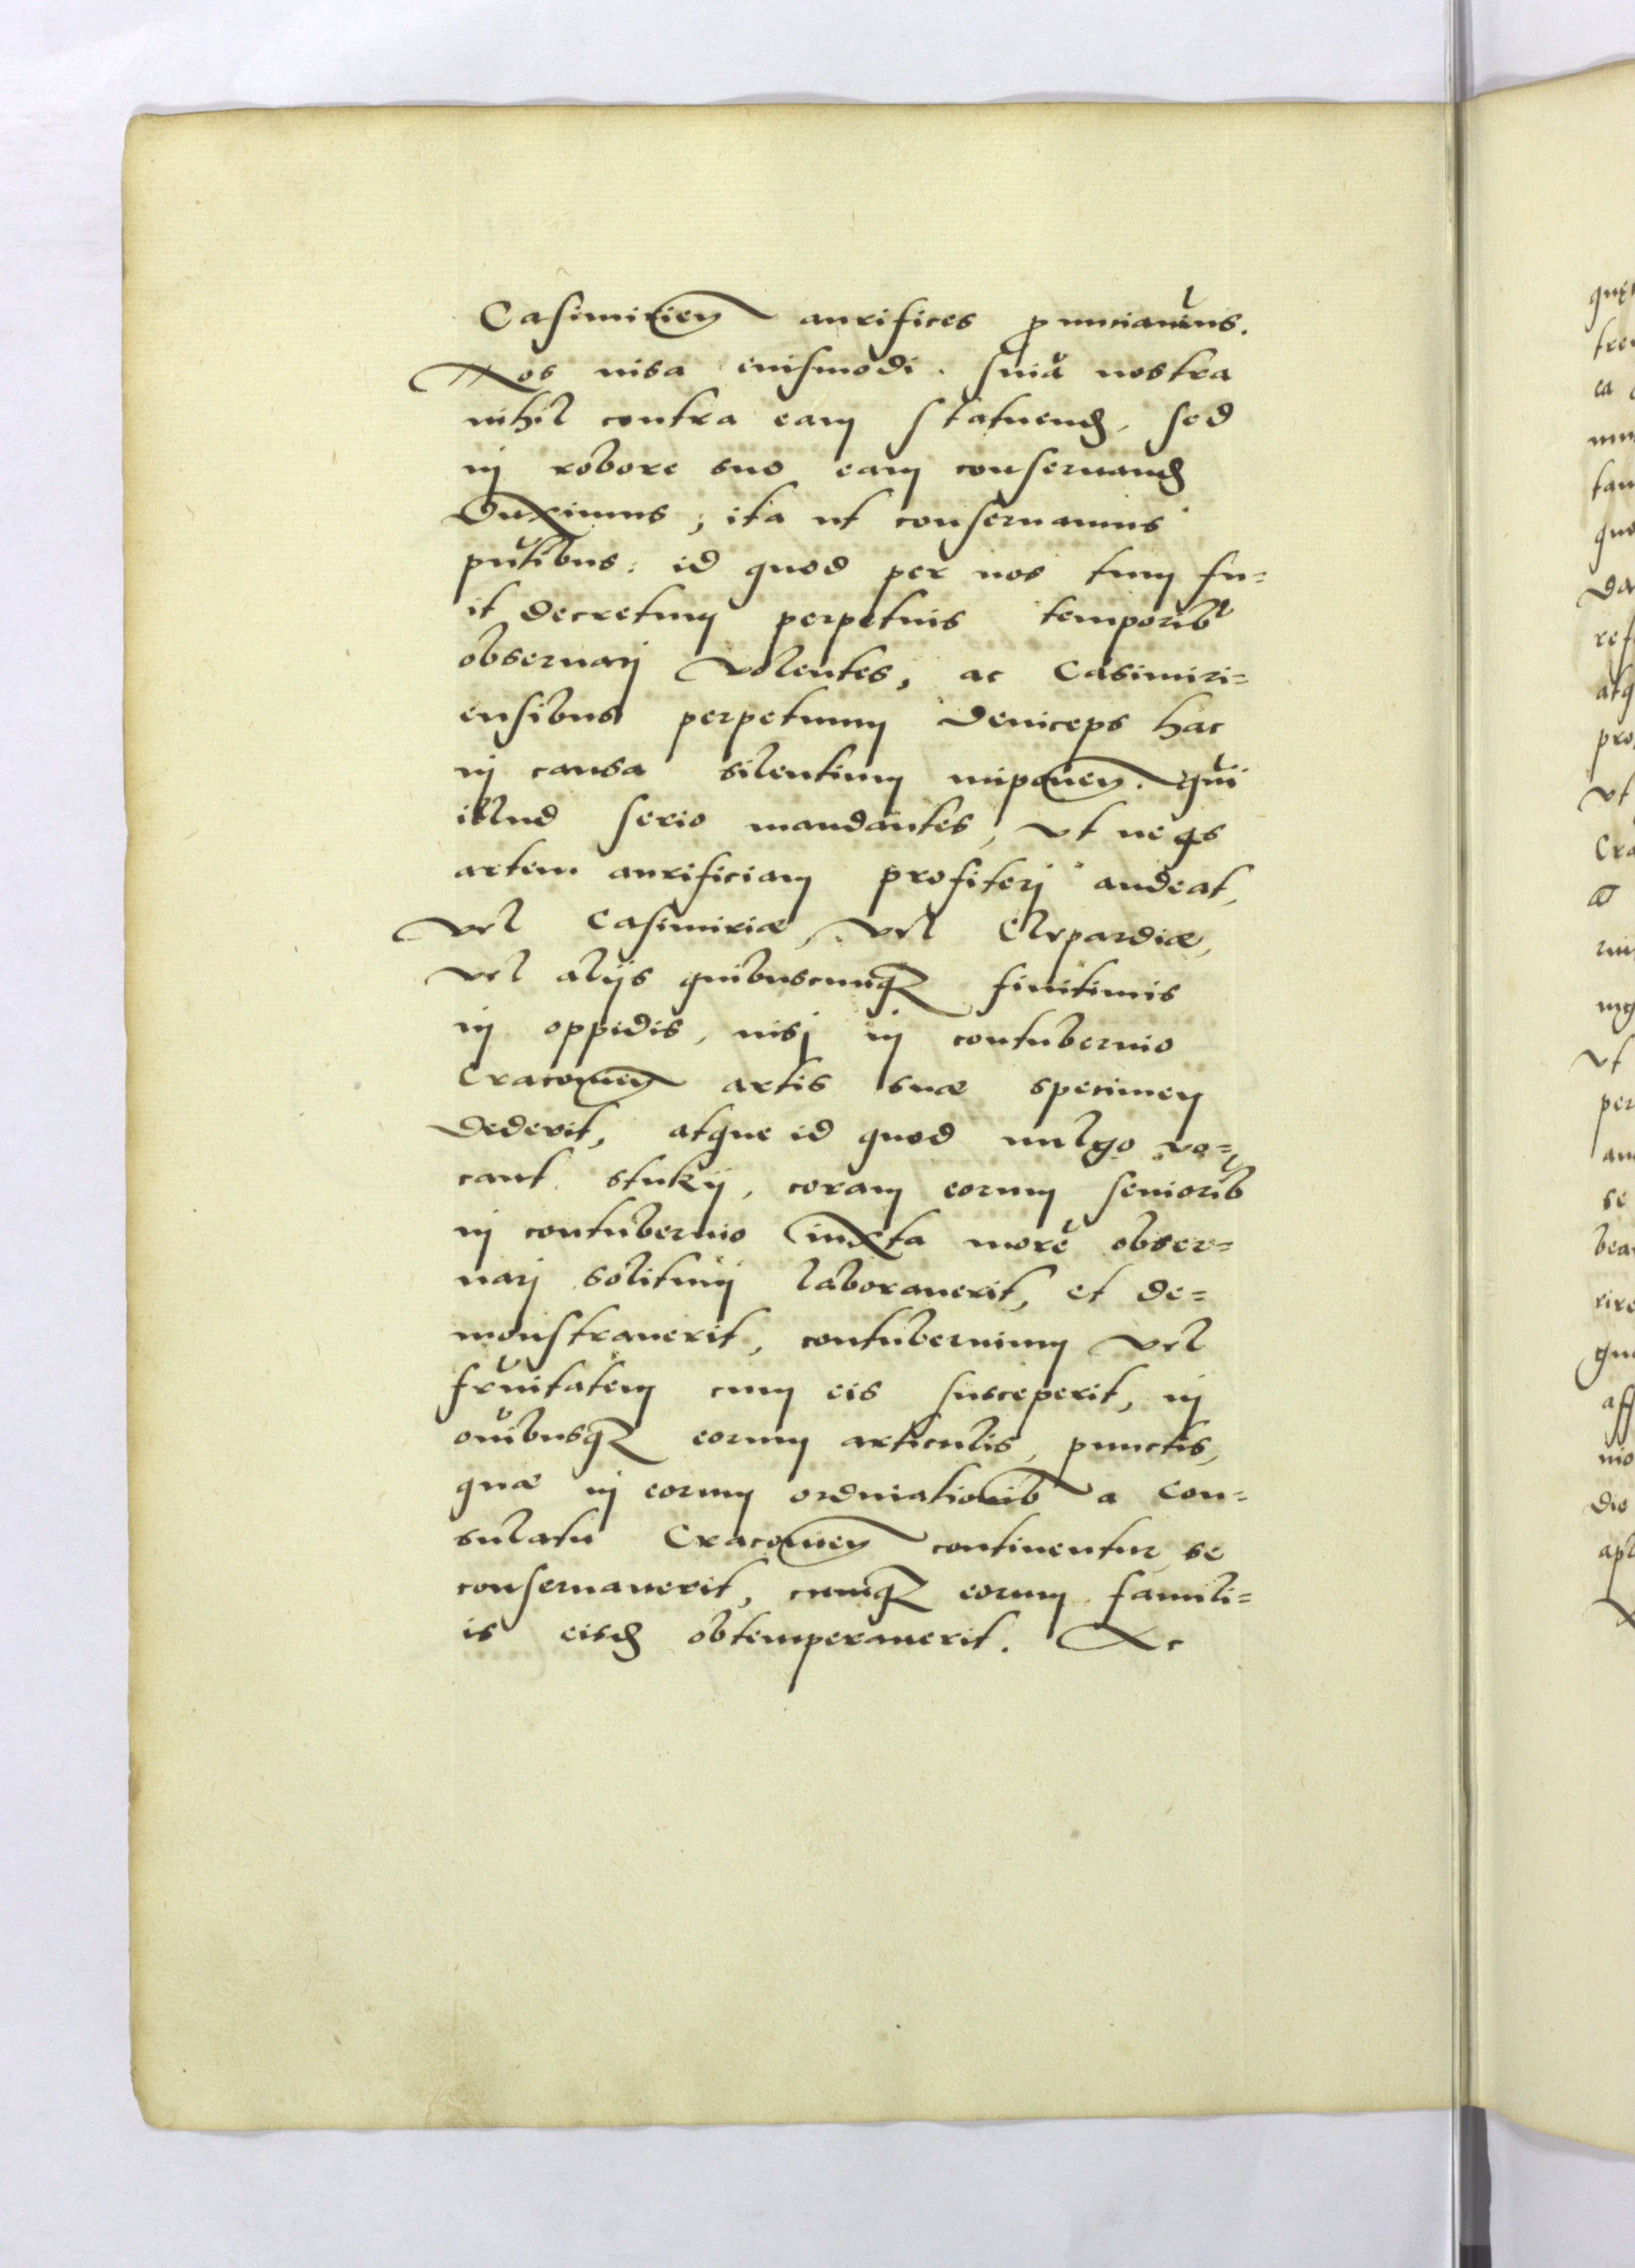 Casimirieñ aurifices ꝓnunciauim̃us.
Nos uisa eiusmodi sniã nostra
nihil contra eam statuend, sed
in robore suo eam conseruand
Duximus, ita ut conseruamus
pñtibus: id quod per nos tum fu=
it decretum perpetuis temporib9
obseruarj volentes, ac Casimiri=
ensibus perpetuum deniceps hac
in causa silentium imponeñ.
illud serio mandantes, vt ne qs
artem aurificiam profiterj audeat,
vel Casimiriæ, vel Clepardiæ,
vel alijs quibuscunqꝫ finitimis
in oppidis, nisj in contubernio
Cracovieñ artis suæ specimen
dederit, atque id quod uulgo vo=
cant stukij, coram eorum seniorib9
in contubernio iuxta morẽ obser=
uarj solitum laborauerit, et de=
monstrauerit, contubernium vel
fr̃nitatem cum eis susceperit, in
oĩbusqꝫ eorum articulis, punctis,
quæ in eorum ordinationib9 a Con=
sulatu Cracovieñ continentur se
conseruauerit, cumqꝫ eorum famili=
is eisd obtemperauerit. Ac